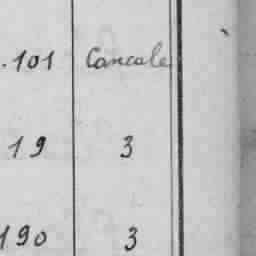 .101 Cancale
19 3
190 3